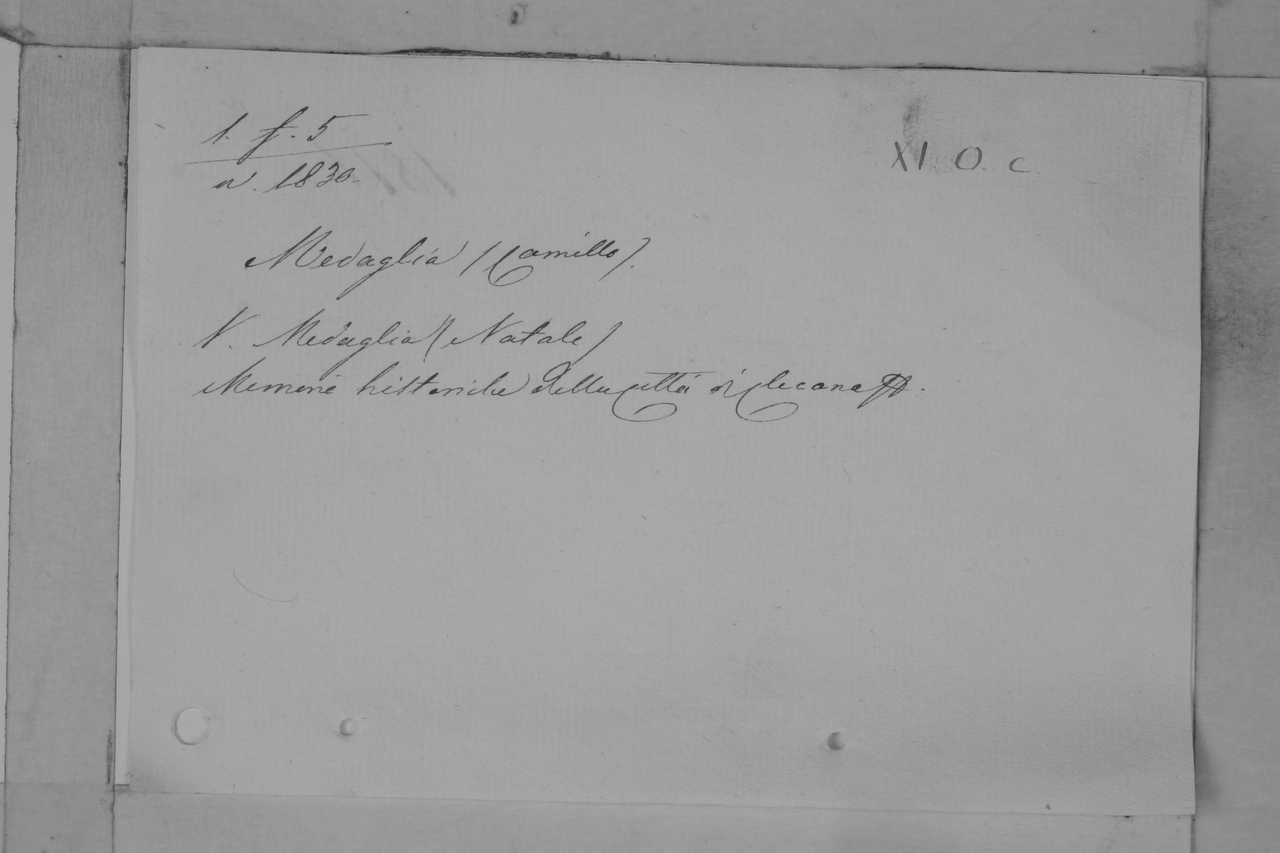 1. f. 5
a. 1830.
XI. O. C.
Medaglia (Camillo).
V. Medaglia (Natale)
Memorie historiche della Città di Cluana &.